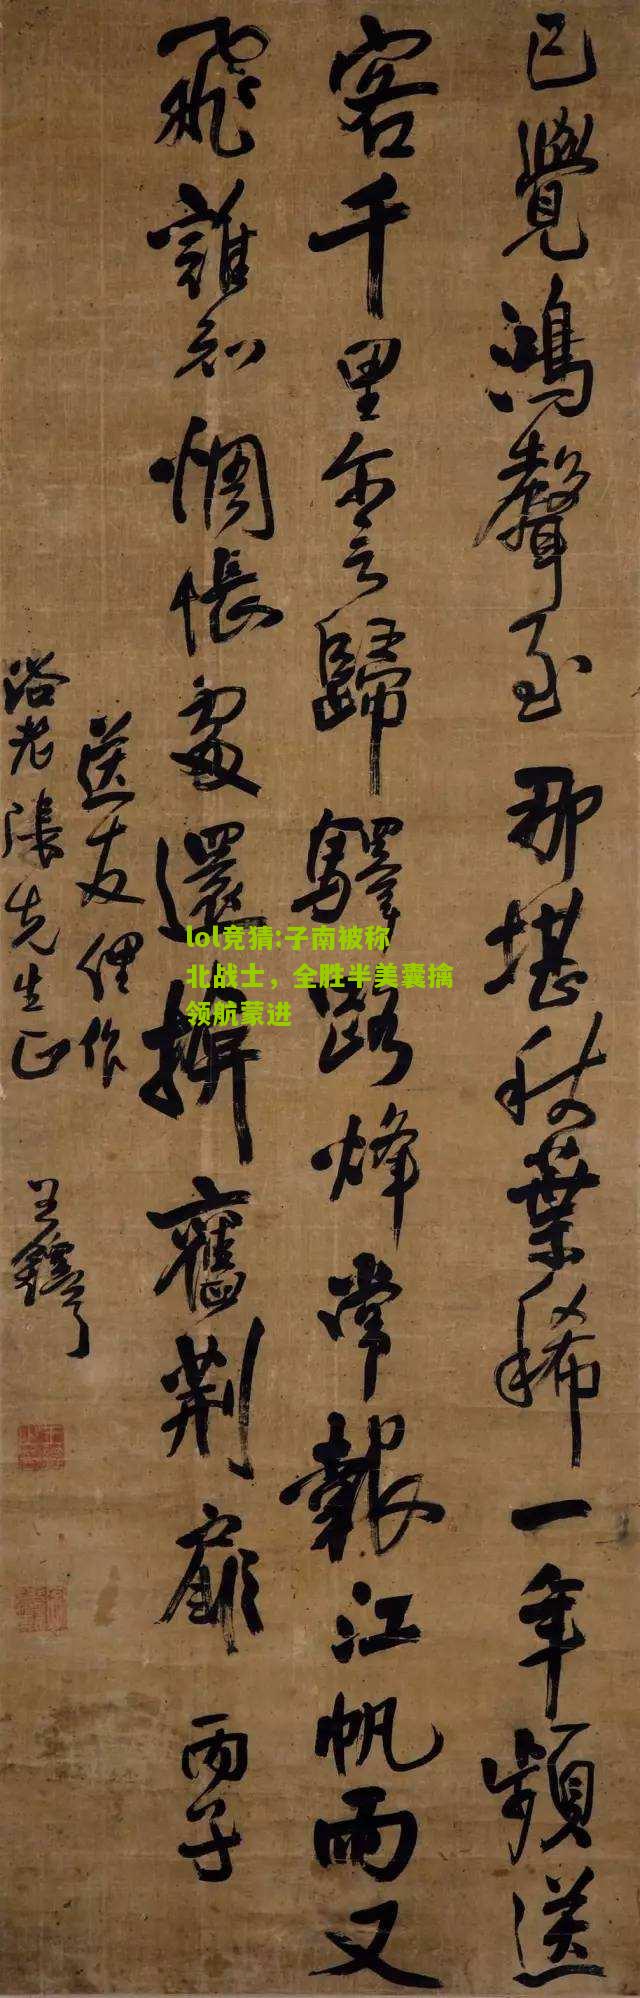 已覺鴻聲至那堪秋葉稀一年頻送
客千里尔言歸驛路烽常報江帆雨又
飛誰知惆悵處還掩舊荆扉 丙子
送友俚作
浴老張先生正
王鐸
lol竞猜:子南被称
北战士，全胜半美囊擒
领航蒙进